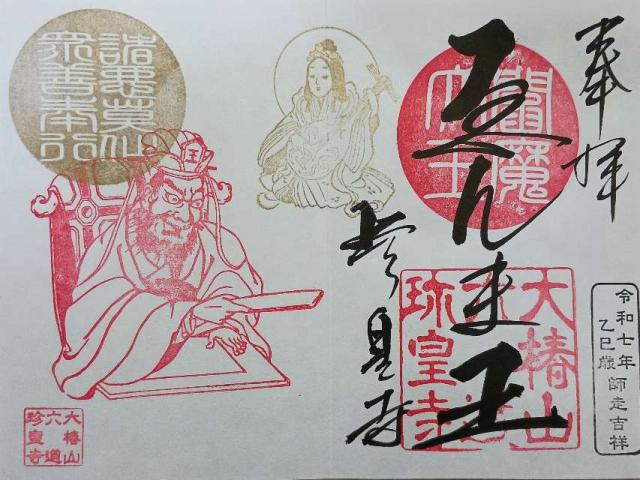 奉拝
ゑんま王
珍皇寺
閻魔
大王
大椿山
六道
珍皇寺
令和七年
乙巳歳師走吉祥
諸悪莫作
衆善奉行
大椿山
六道
珍皇寺
王